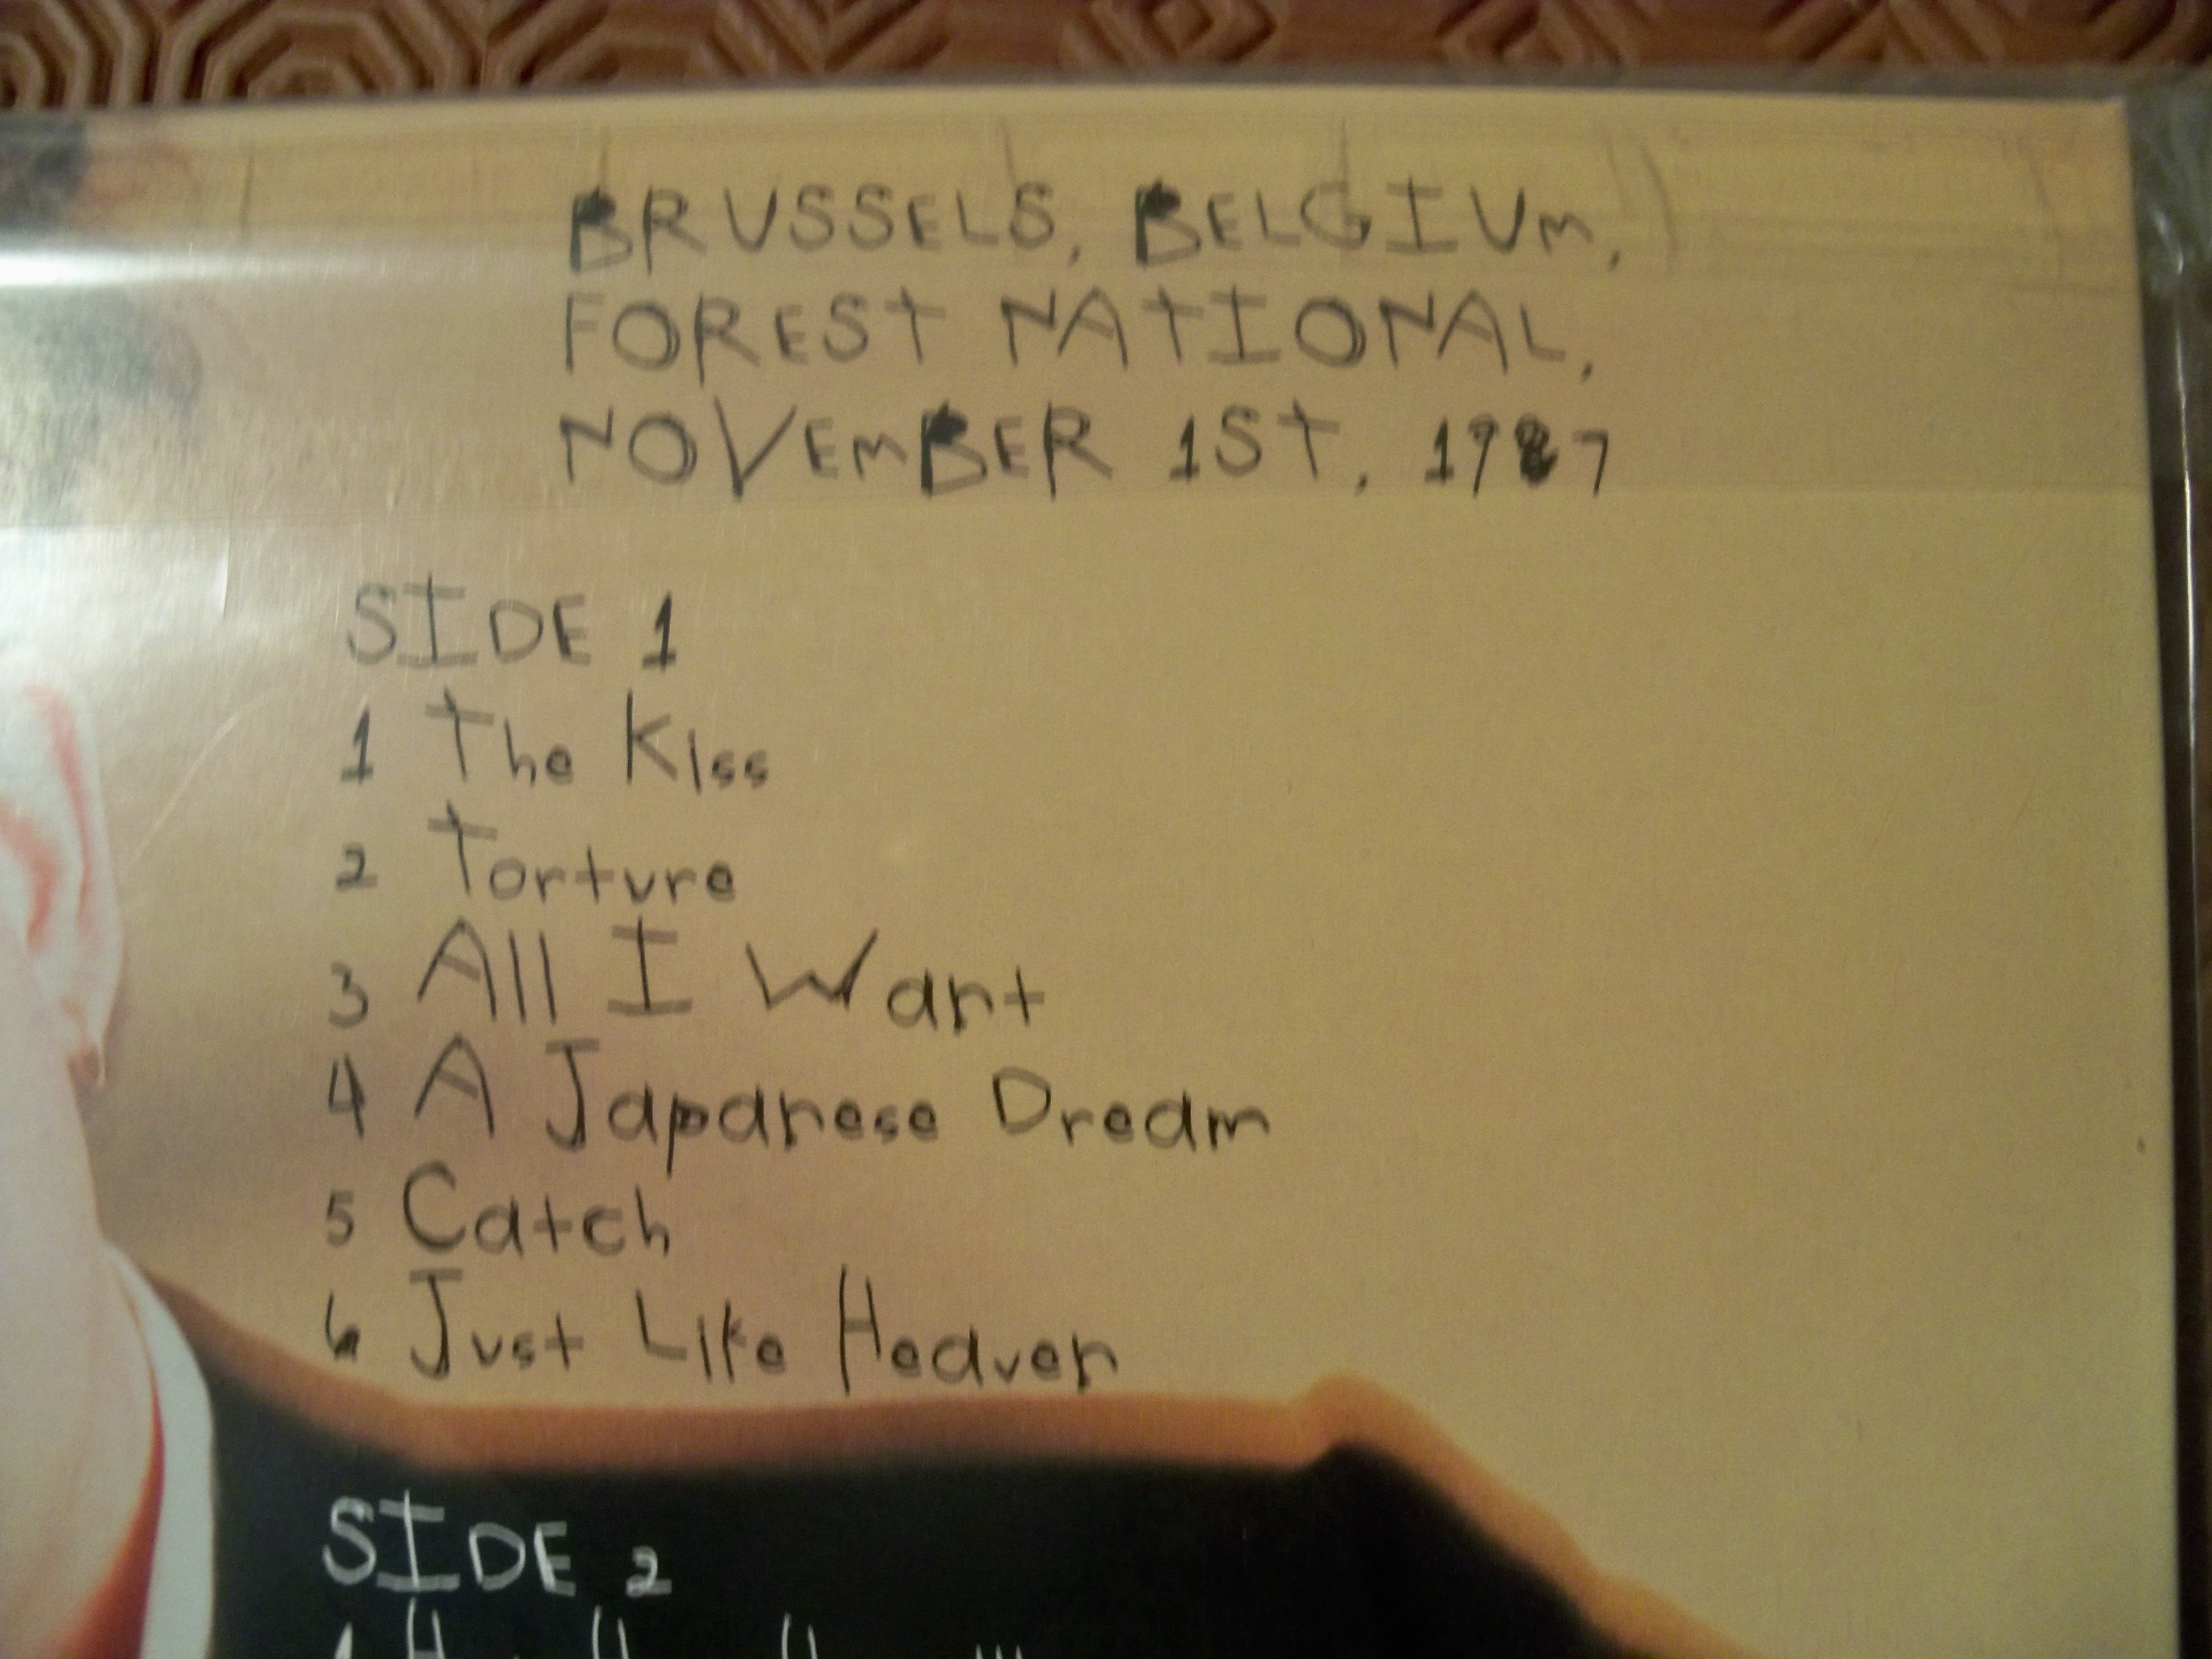 BRUSSELS, BELGIUM,
FOREST NATIONAL,
NOVEMBER 1ST, 1987
SIDE 1
1 The Kiss
2 Torture
3 All I Want
4 A Japanese Dream
5 Catch
6 Just Like Heaven
SIDE 2